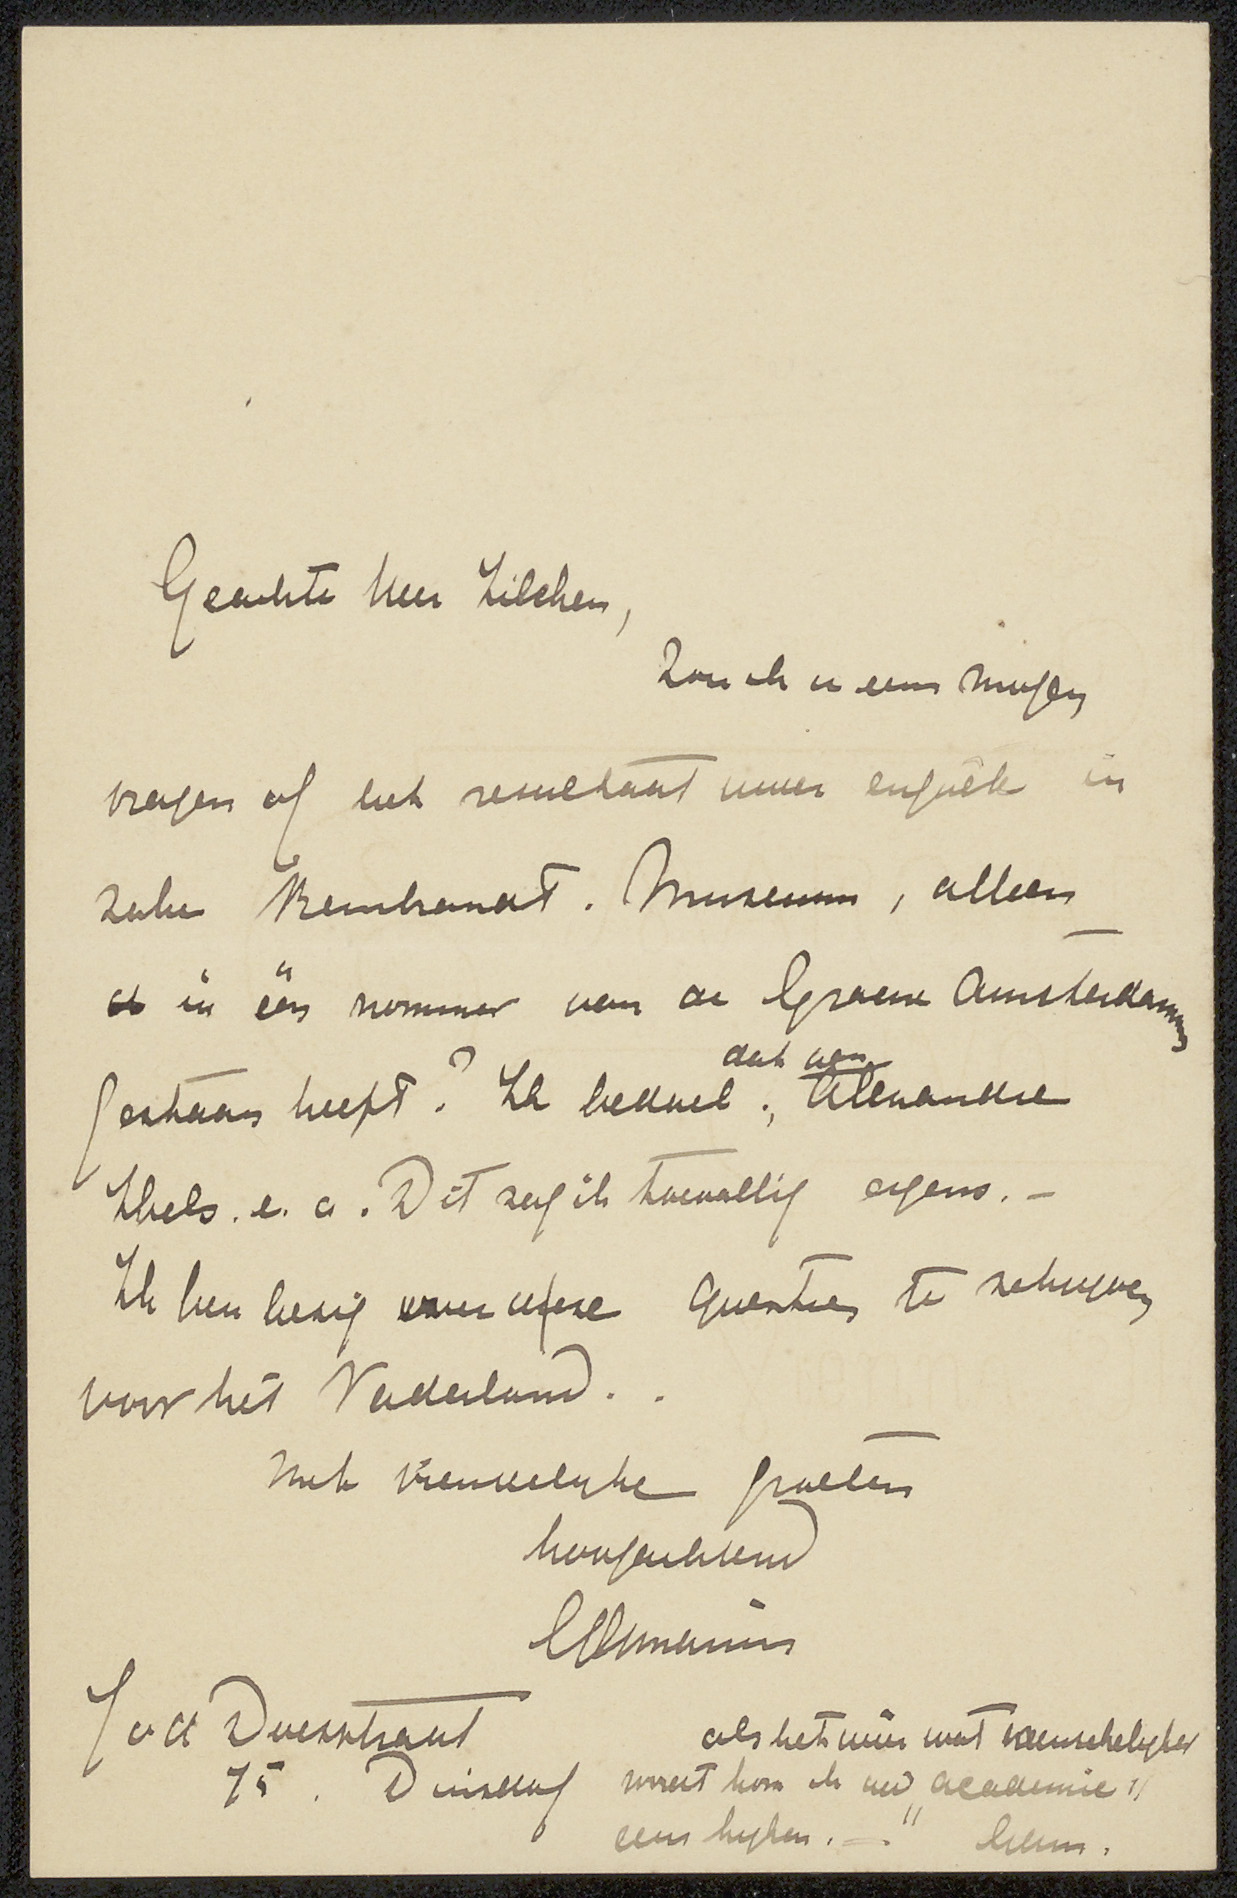 Geachte Heer Zilcken,
Zou ik u eens mogen
vragen of het resultaat uwer enquête in
zake Rembrandt. Museum, alleen
in één nommer van de Groene Amsterdammer
gestaan heeft? Ik bedoel
dat van
Alexandre
Thels. e. a. Dit zag ik toevallig ergens. –
Ik ben bezig over deze questies te schrijven
voor het Vaderland. .
Met vriendelijke groeten
hoogachtend
J v d Doesstraat
75. Dinsdag
als het weer wat menschelijker
wordt kom ik uw „academie"
eens kijken. –